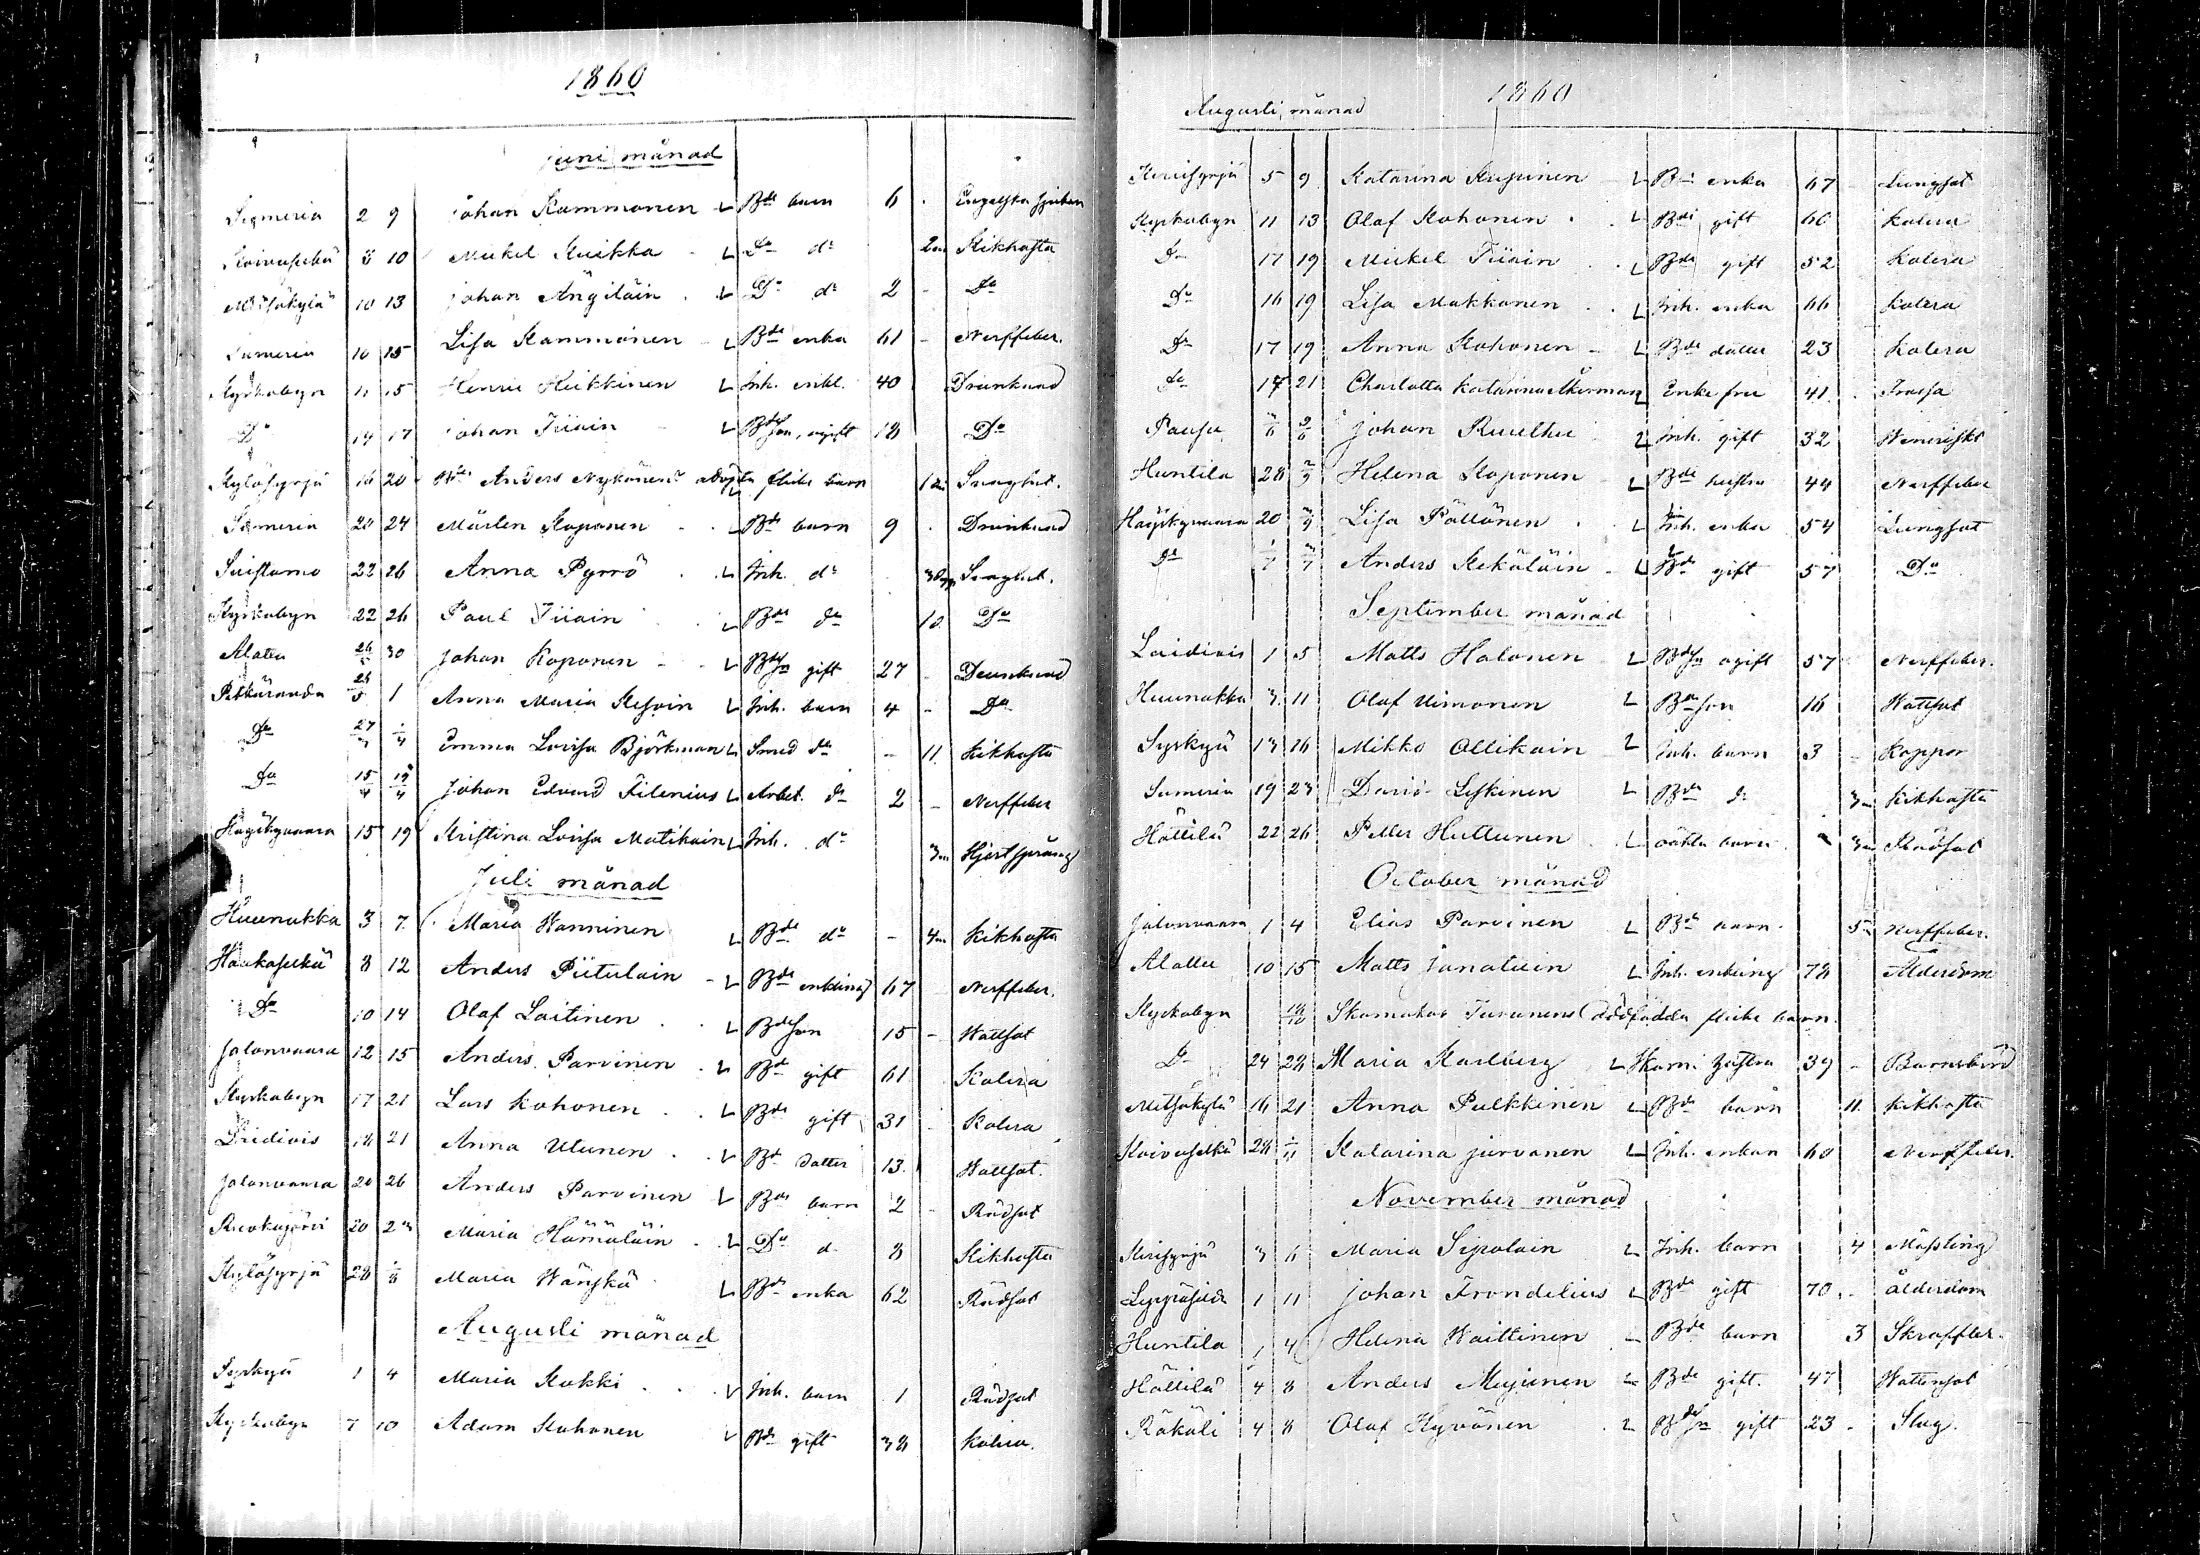 1860
juni månad
2 9 johan Kammonen Bde barn 6 Engelska sjukan
Koivuselkä 3 10 Mickel Kuikka Do do 2m Kikhosta
Mitsäkylä 10 13 johan Ängiläin Do do 2 - Do
10 15 Lisa Kammonen Bde enka 61 - Nerffeber.
Kyrkobyn 11 15 Henric Heikkinen Inh. enkl. 40 Drunknad
Do 14 17 johan Tiiain Bdeson, ogift 18 Do
Kyläsyrjä 16 20 Bde Anders Nykänens flicke barn Slaghet.
20 24 Mårten Koponen Bde barn 9 Drunknad
Suistamo 22 26 Anna Pyrrö Inh. do Slaghet.
Kyrkobyn 22 26 Paul Tiiain Bde do 10 Do
Alatu 30 johan Koponen Bdeson gift 27 Drunknad
Pitkäranda 1 Anna Maria Inh. barn 4 - Do
Do 27 Emma Lovisa Björkman Smed do - 11 Kikhosta
Do 15/4 19/4 Johan Edvard Filenius Arbet. do 2 - Nerffeber
15 19 Kristina Lovisa Matikain Inh. do 3m Hjertsprång
Juli månad
Huunukka 3 7 Maria Wanninen Bde do - 4m Kikhosta
Haukaselkä 8 12 Anders Piitulain Bde enkling 67 Nerffeber.
Do 10 14 Olaf Laitinen Bdeson 15 - Wattsot
Jalonvaara 12 15 Anders Parvinen Bde gift 61 Kolera
Kyrkobyn 17 21 Lars Kohonen Bde gift 31 Kolera
18 21 Anna Ulunen Bd dotter 13. Wattsot.
Jalonvaara 20 26 Anders Parvinen Bde barn 2 - Rödsot
20 Maria Hämäläin Do d. 8 Kikhosta
Kyläsyrjä 28 1/8 Maria Wänskä Bde enka 62 Rödsot
Augusti månad
Syskyä 1 4 Maria Kokki Inh. barn 1 Rödsot
Kyrkobyn 7 10 Adam Kohonen Bde gift 38 Kolera.
1860
Augusti månad
5 9 Katarina Kupinen Bde enka 67 - Lungsot
Kyrkobyn 11 13 Olaf Kohonen Bde gift 60 Kolera
Do 17 19 Mickel Tiiain Bde gift 52 Kolera
Do 16 19 Lisa Makkonen Inh. enka 66 Kolera
Do 17 19 Anna Kohonen Bde dotter 23 Kolera
Do 17 21 Charlotta Katarina Åkerman Enke fru 41 Frossa
johan Inh. gift 32 Weneriskt
Huntila 28 Helena Koponen Bde hustru 44 Nerffeber
20 Lisa Pöllänen Inh. enka 54 Lungsot
Do Anders Kekäläin Bde gift 57 Do
September månad
1 5 Matts Halonen Bdeson ogift 57 Nerffeber.
Huunukka 3 11 Olaf Uimonen Bdeson 16 Wattsot
Syskyä 13 16 Mikko Ollikain Inh. barn 3 - Koppor
19 23 Leskinen Bde do 3m Kikhosta
Hättilä 22 26 Petter Huttunen oäkta barn 3m Rödsot
October månad
Jalonvaara 1 4 Elias Parvinen Bde barn 5m Nerffeber.
Alattu 10 15 Matts Janatuin Inh. enkling 78 Ålderdom
Kyrkobyn Skomakar Turunens dödfödda flicke barn.
Do 24 28 Maria Karlberg Skom. hustru 39 - Barnsbörd
Mitsäkylä 16 21 Anna Pulkkinen Bde barn 11. Kikhosta
Koivuselkä 28 1/11 Katarina jurvanen Inh. enkan 60 Nerffeber.
November månad
3 6 Maria Sipolain Inh. barn 4 Mässling
1 11 johan Frondelius Bde gift 70 - ålderdom
Huntila 1 4 Helena Waittinen Bde barn 3
Hättilä 4 8 Anders Mujunen Bde gift. 47 Wattusot
Räkäli 4 8 Olaf Hyvönen Bdeson gift 23 - Slag.